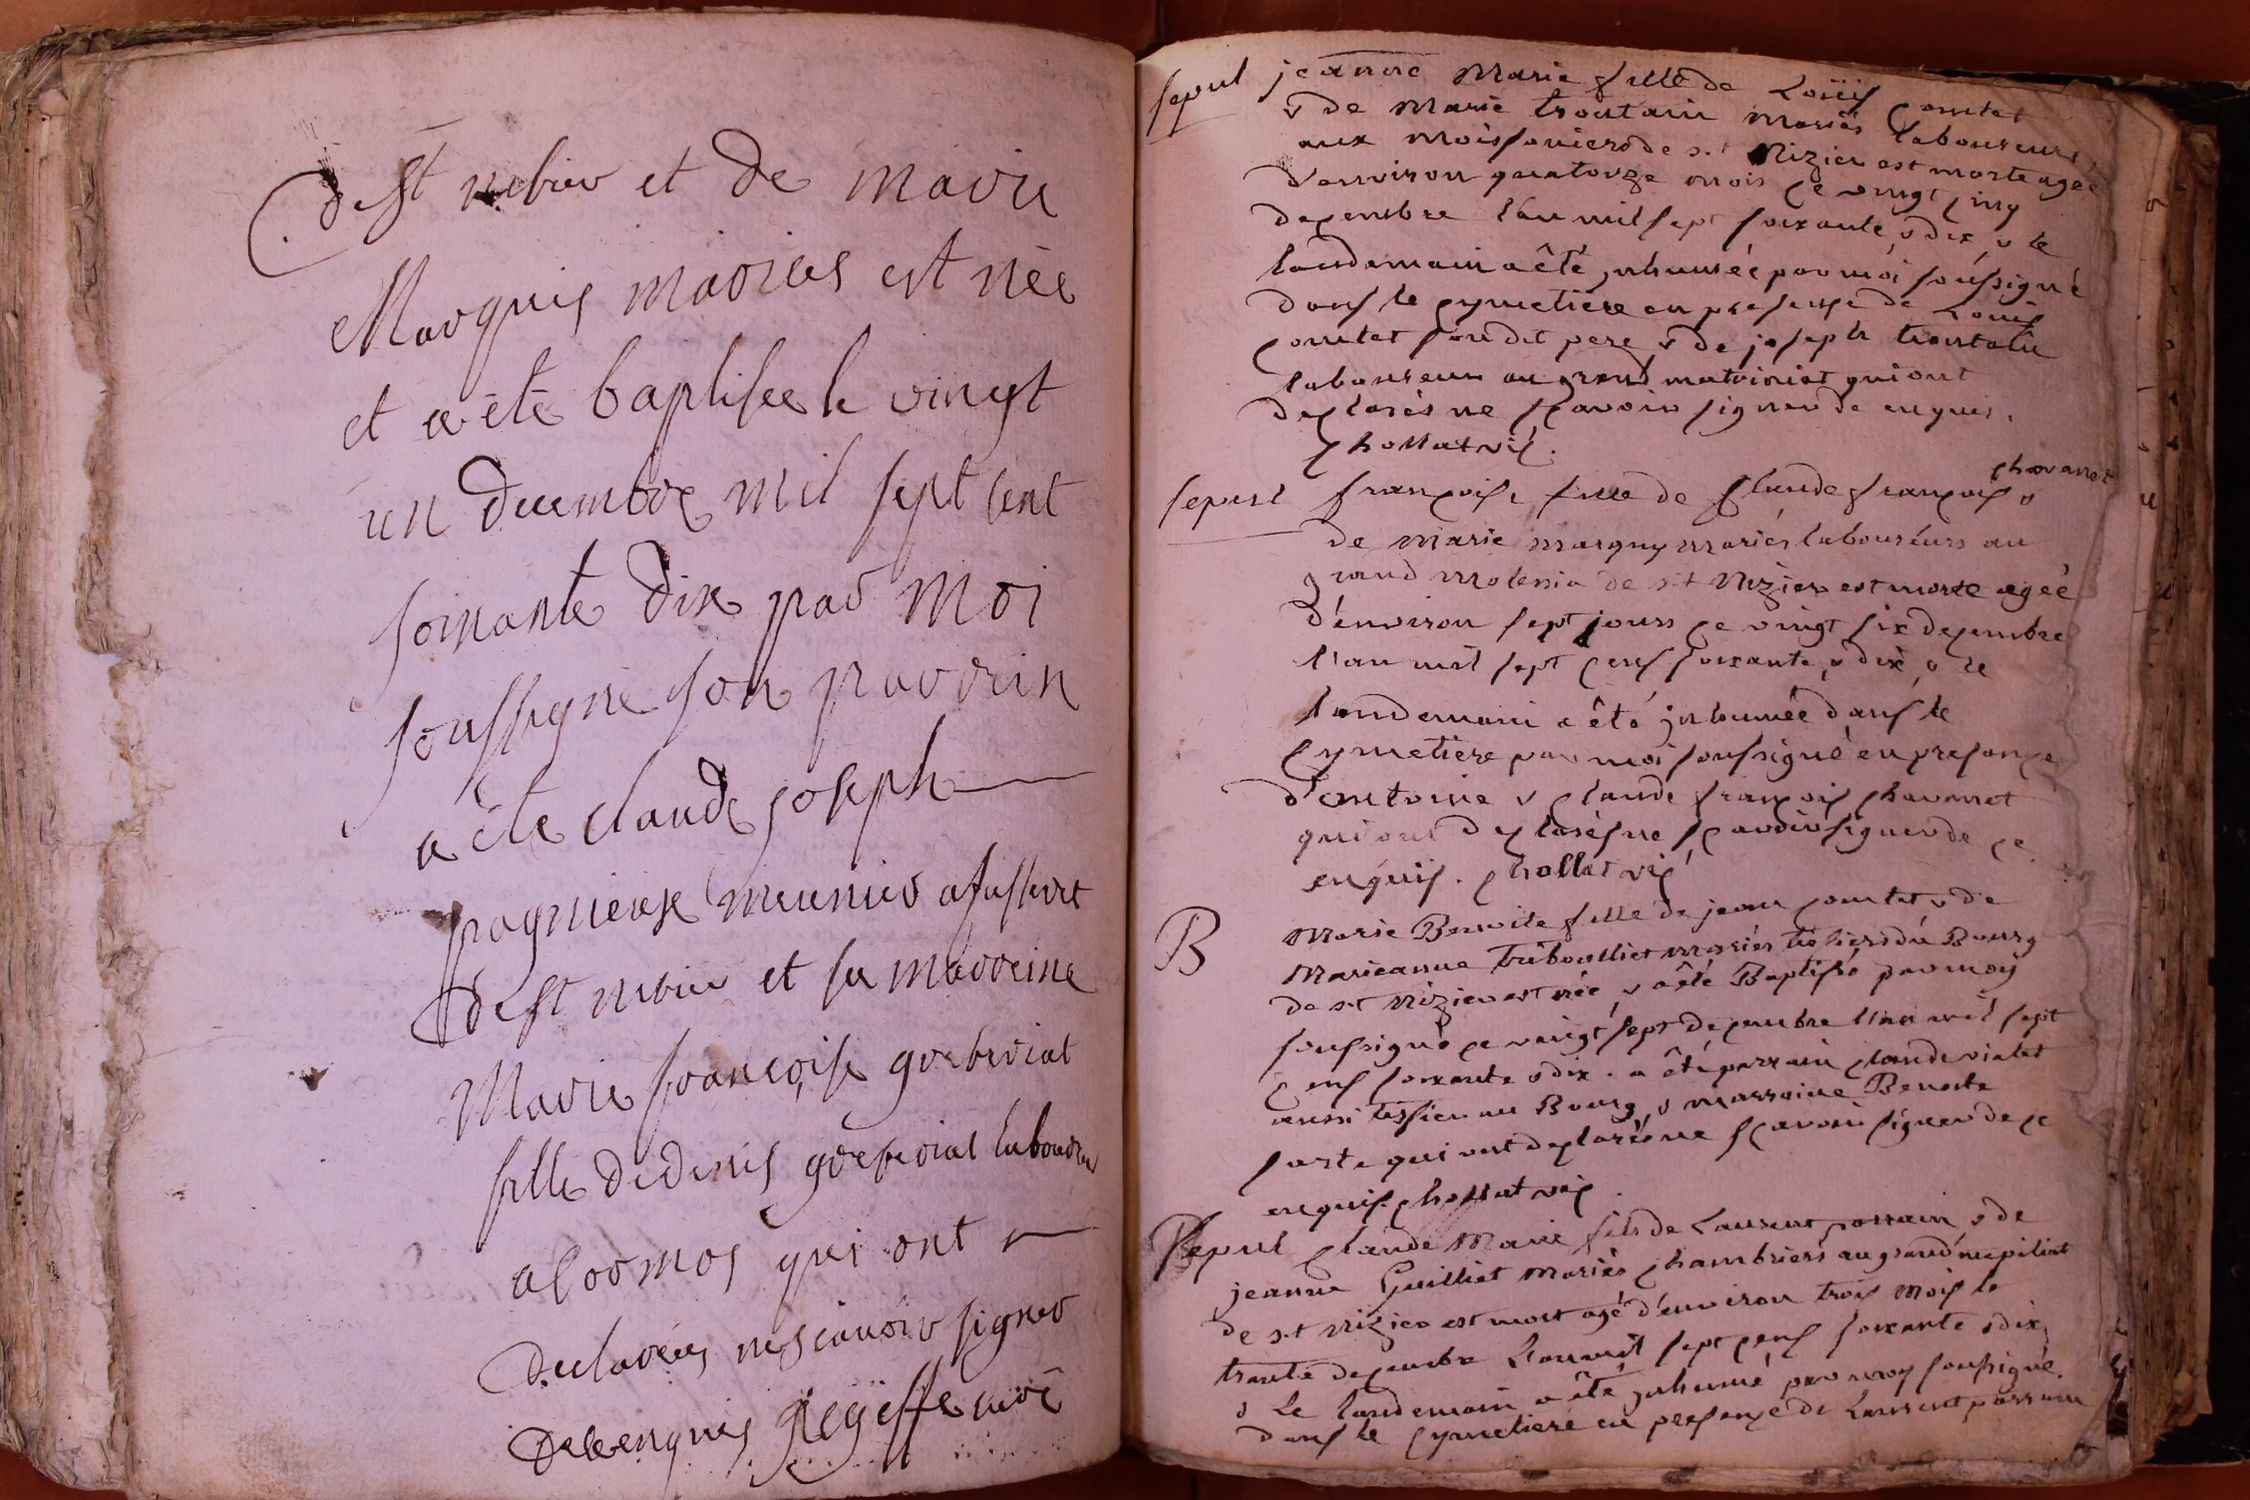 de st nizier et de marie
Marquis mariés est née
et a été baptisée le vingt
un decembre mil sept cent
soixante dix par moi
soussigné son parrin
a été claude joseph
pagnieux meunier a fusseret
de st nizier et sa marreine
Marie françoise
fille de denis laboureur
qui ont
declarées ne scavoir signer
de ce enquis vicre
sepul jeanne Marie fille de Loüis comtet
& de Marie troutain mariés laboureurs
aux moissoniers de st Nizier est morte ageé
d'environ quatorze mois ce vingt cinq
decembre l'an mil sept soixante & dix & le
landemain a été inhumée par moi soussigné
dans le cymetiere en presence de Louis
comtet son dit pere & de joseph troutain
laboureur au grand qui ont
declarés ne scavoir signer de enquis.
chollat vic.
chavanet
sepul françoise fille de claude françois &
de Marie marguy mariés laboureurs au
grand molenia de st Nizier est morte ageé
d'environ sept jours ce vingt six decembre
l'an mil sept cens soixante & dix & le
landemain a été inhumée dans le
cymetiere par moi soussigné en presence
d'antoine & claude françois chavanet
qui ont declarés ne scavoir signer de ce
enquis. chollat vic
B Marie Benoite fille de jean comtet & de
Marieanne tribolliet mariés tissiers du Bourg
de st Nizier est née & a été Baptisée par moy
soussigné ce vingt sept decembre l'an mil sept
cens soixante & dix. a été parrain claude vialet
aussi tissier au Bourg & marraine Benoite
qui ont declarés ne scavoir signer de ce
enquis. chollat vic
Sepul claude Marie fils de Laurent parrain & de
jeanne Guilliet mariés chambriers au grand
de st Nizier est mort agé d'environ trois mois le
trante decembre L'an mil sept cens soixante & dix
& Le landemain a été inhumé par moy soussigné
dans le cymetiere en presence de Laurent parrain